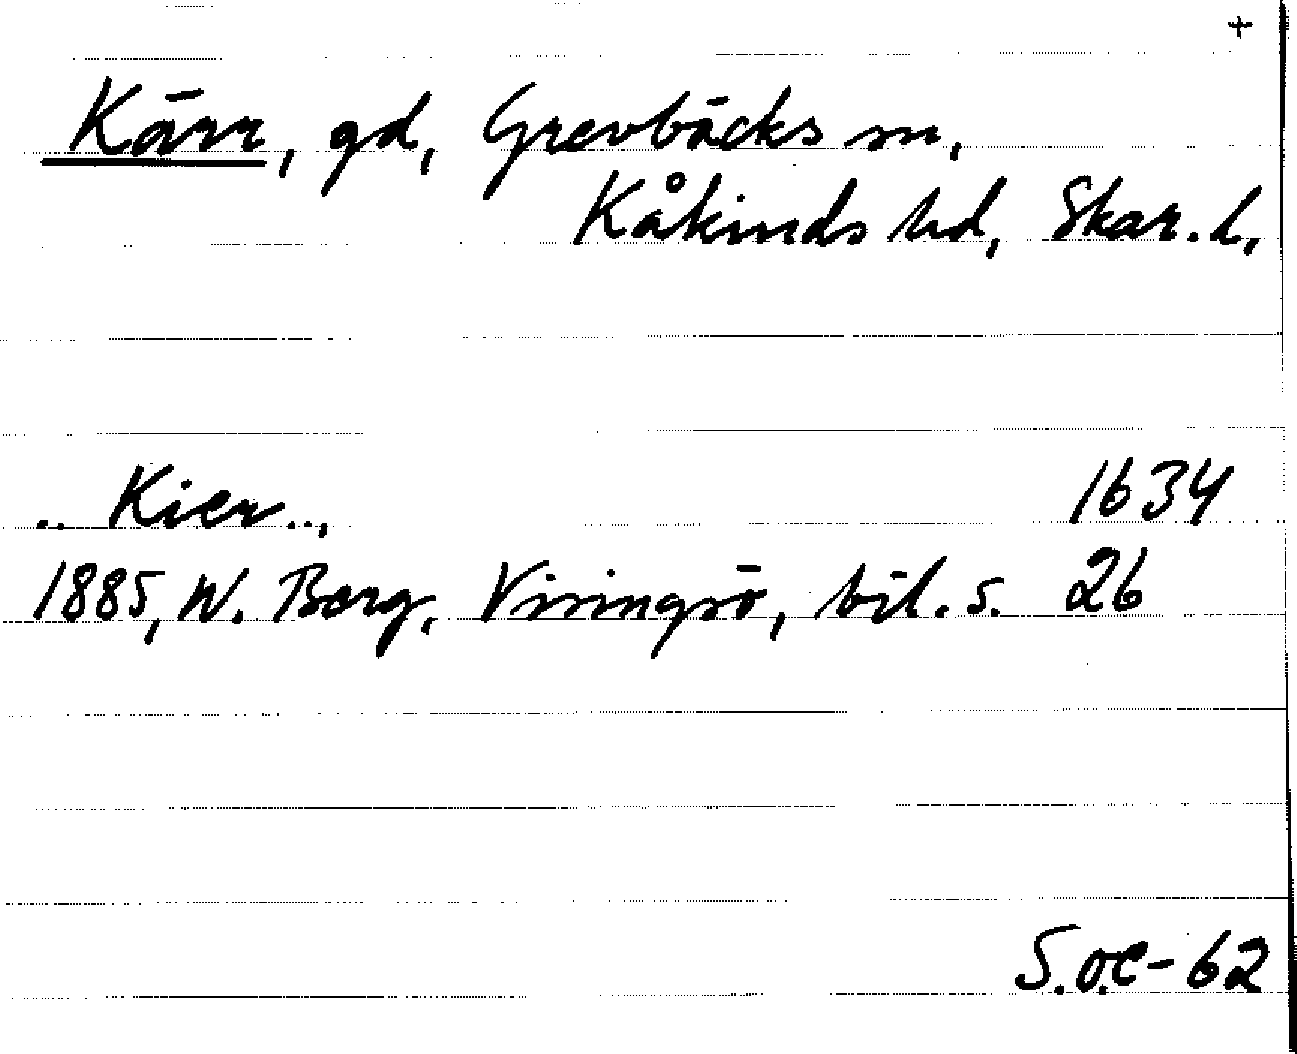 +
Kärr, gd, Grevbäcks sn,
Kåkinds hd, Skar. l,
.. Kier..,    1634
1885, W. Berg, Visingsö, bil. s. 26
S.O.C-62